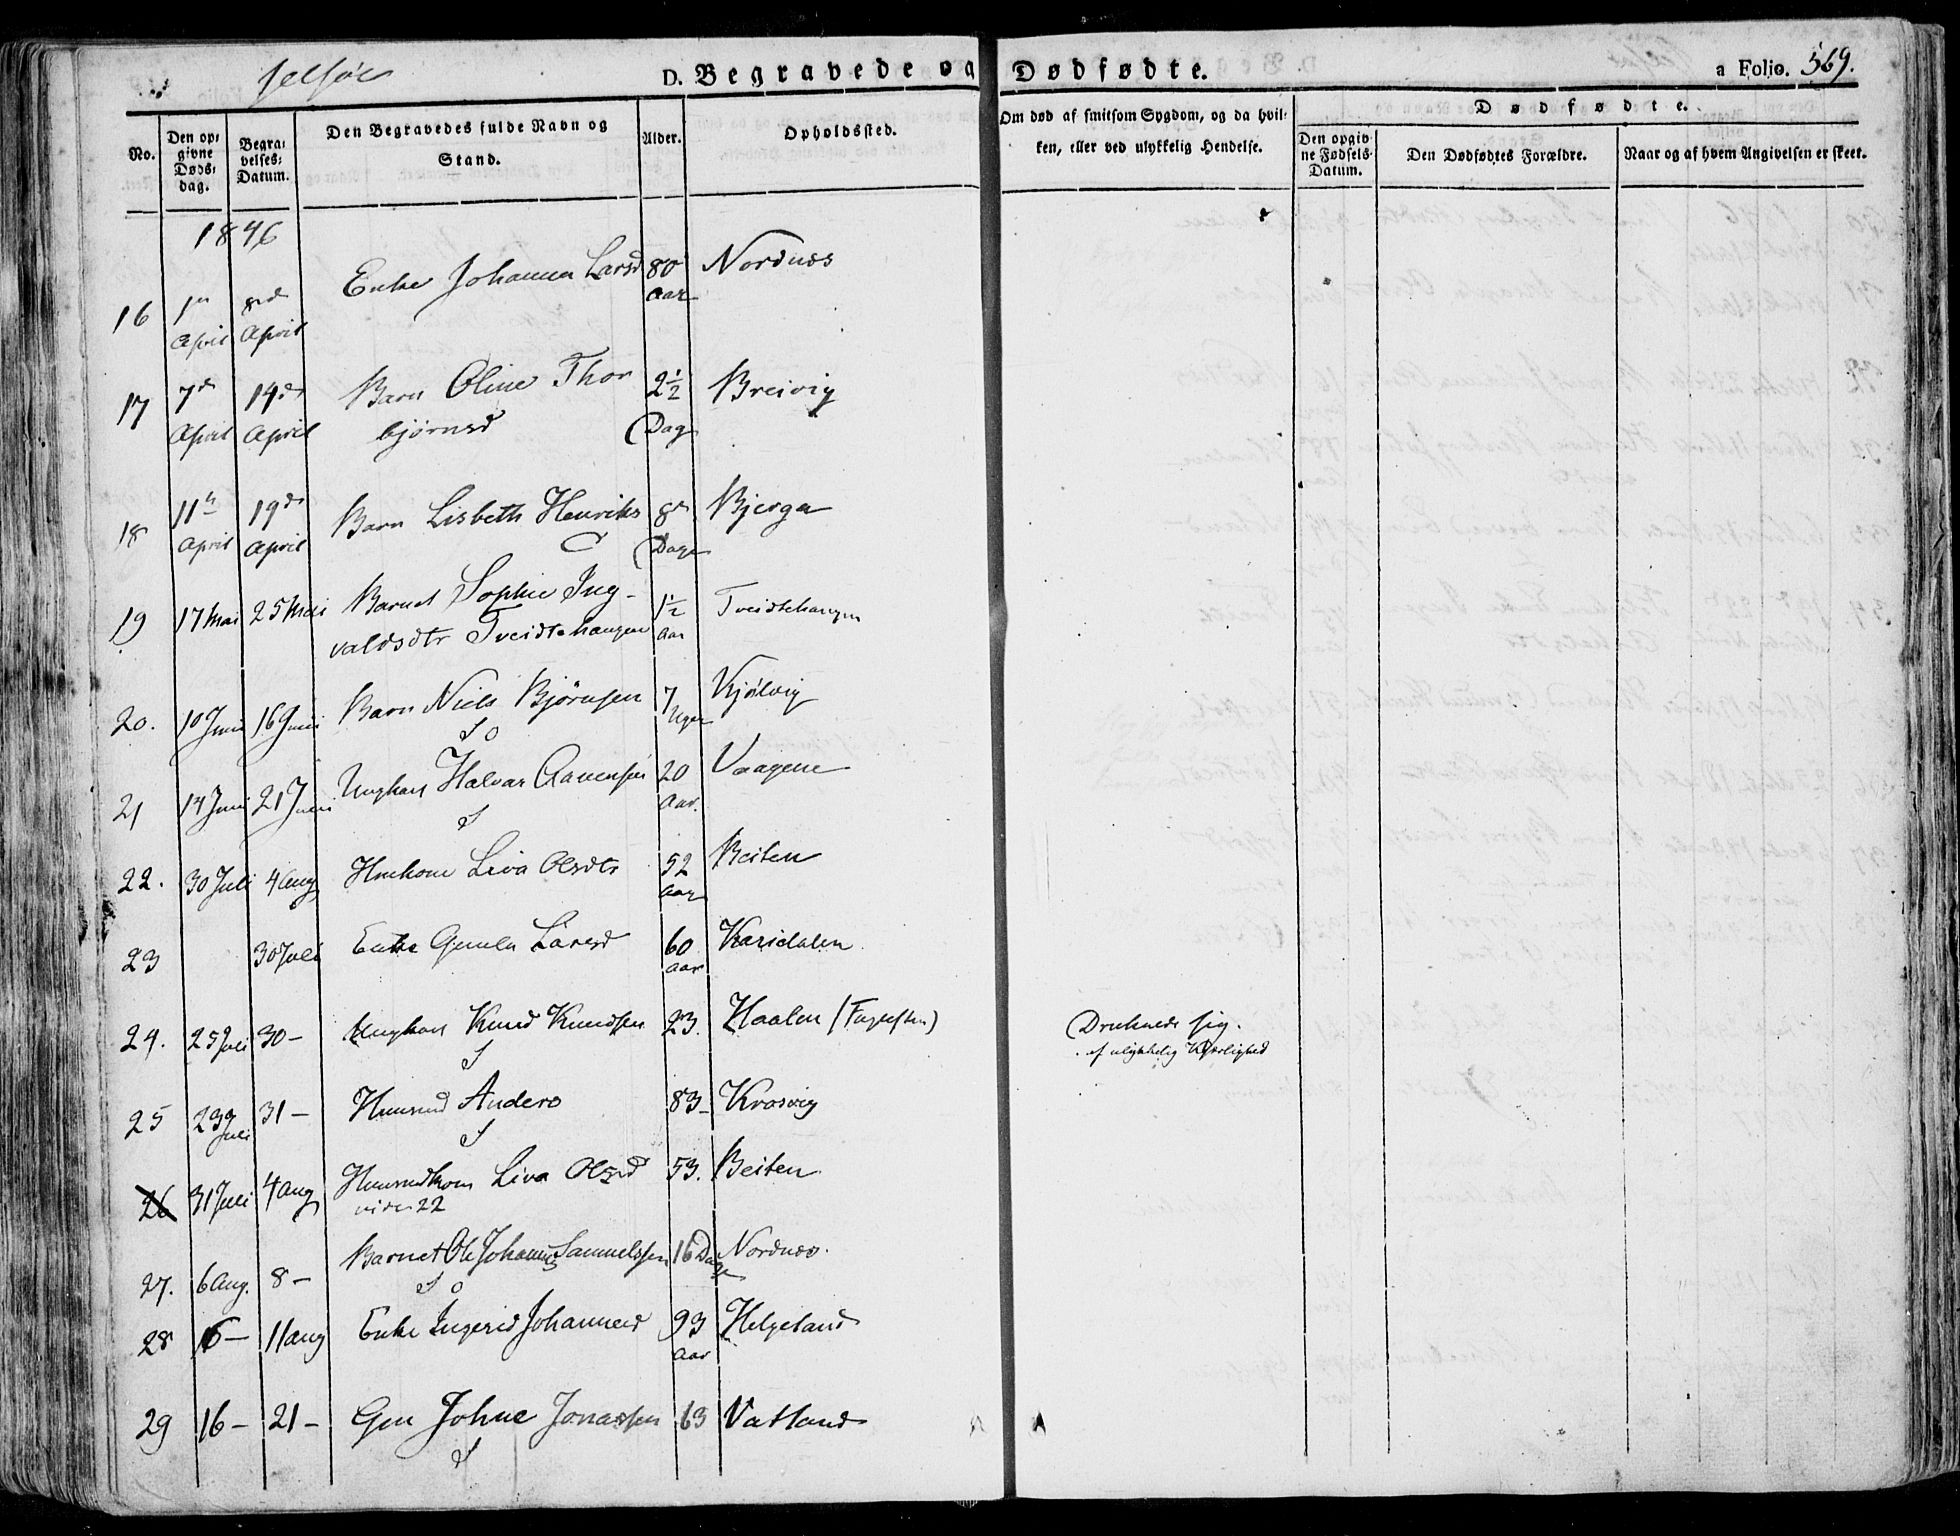 Jelsøe
D. Begravede og Dødfødte.
a Folio. 569.
No.
Den opgivne Døds-dag.
Begravelses-Datum.
Den Begravedes fulde Navn og Stand.
Alder.
Opholdssted.
Om død af smitsom Sygdom, og da hvilken, eller ved ulykkelig Hendelse.
Dødfødte.
Den opgivne Fødsels-Datum.
Den Dødfødtes Forældre.
Naar og af hvem Angivelsen er skeet.
1846
16 1ste April 8de April Enke Johanna Larsd 80 Aar Nordnæs
17 7de April 14de April Barn Oline Thor
bjørnsd 2½ Dag Breivig
18 11te April 19de April Barn Lisbeth Henriks 8te Dage Bjerga
19 17 Mai 25 Mai Barnet Sophie Ing-
valdsdtr Tveidtehaugen 1½ Aar Tveidtehaugen
20. 10 Juni 16 Juni Barn Niels Bjørnsen 7 Uger Kjølvig
21 14 Juni 21 Juni Ungkarl Halvar Aanensen 20 Aar. Vaagene
22. 30 Juli 4 Aug Huuskone Liva Olsdtr 52 Aar Beiten
23 30 Juli Enke Gunla Larsd 60 Aar Karidalen
24. 25 Juli 30 - Ungkarl Knud Knudsen 23. Haalen (Fogesten) Druknede sig.
af ulykkelig Kjærlighed
25 23 Juli 31 - Huusmd Anders 83 - Krosvig
26 31 Juli 4 Aug Huusmdkone Liva Olsd 53. Beiten
vide 22
27. 6 Aug. 8 - Barnet Ole Johannes Samuelssen 16 Dage Nordnæs.
28 6 - 11 Aug Enke Ingerid Johannesd 93 Aar Helgeland
29 16 - 21 - Gm Johne Jonassen 63 Vatland